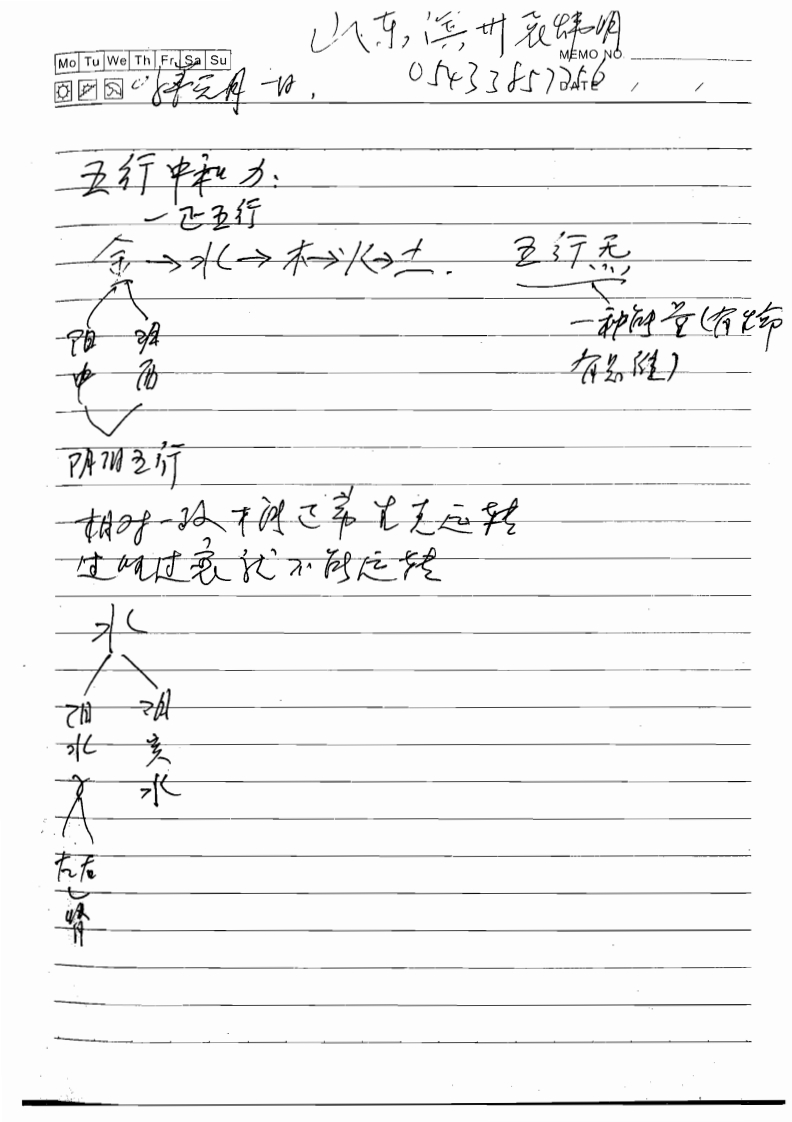 山东滨州袁炜明
Mo Tu We Th Fr Sa Su
MEMO NO.
05433857256
DATE / /
元月一日.
五行中和力:
一正五行
金→水→木→火→土. 五行炁
一种能量(有生命
有思维)
阳 阴
中 西
阴阳五行
相对一致才能正常生克运转
过旺过衰就不能运转
水
阳 阴
水 亥
水
左右
肾